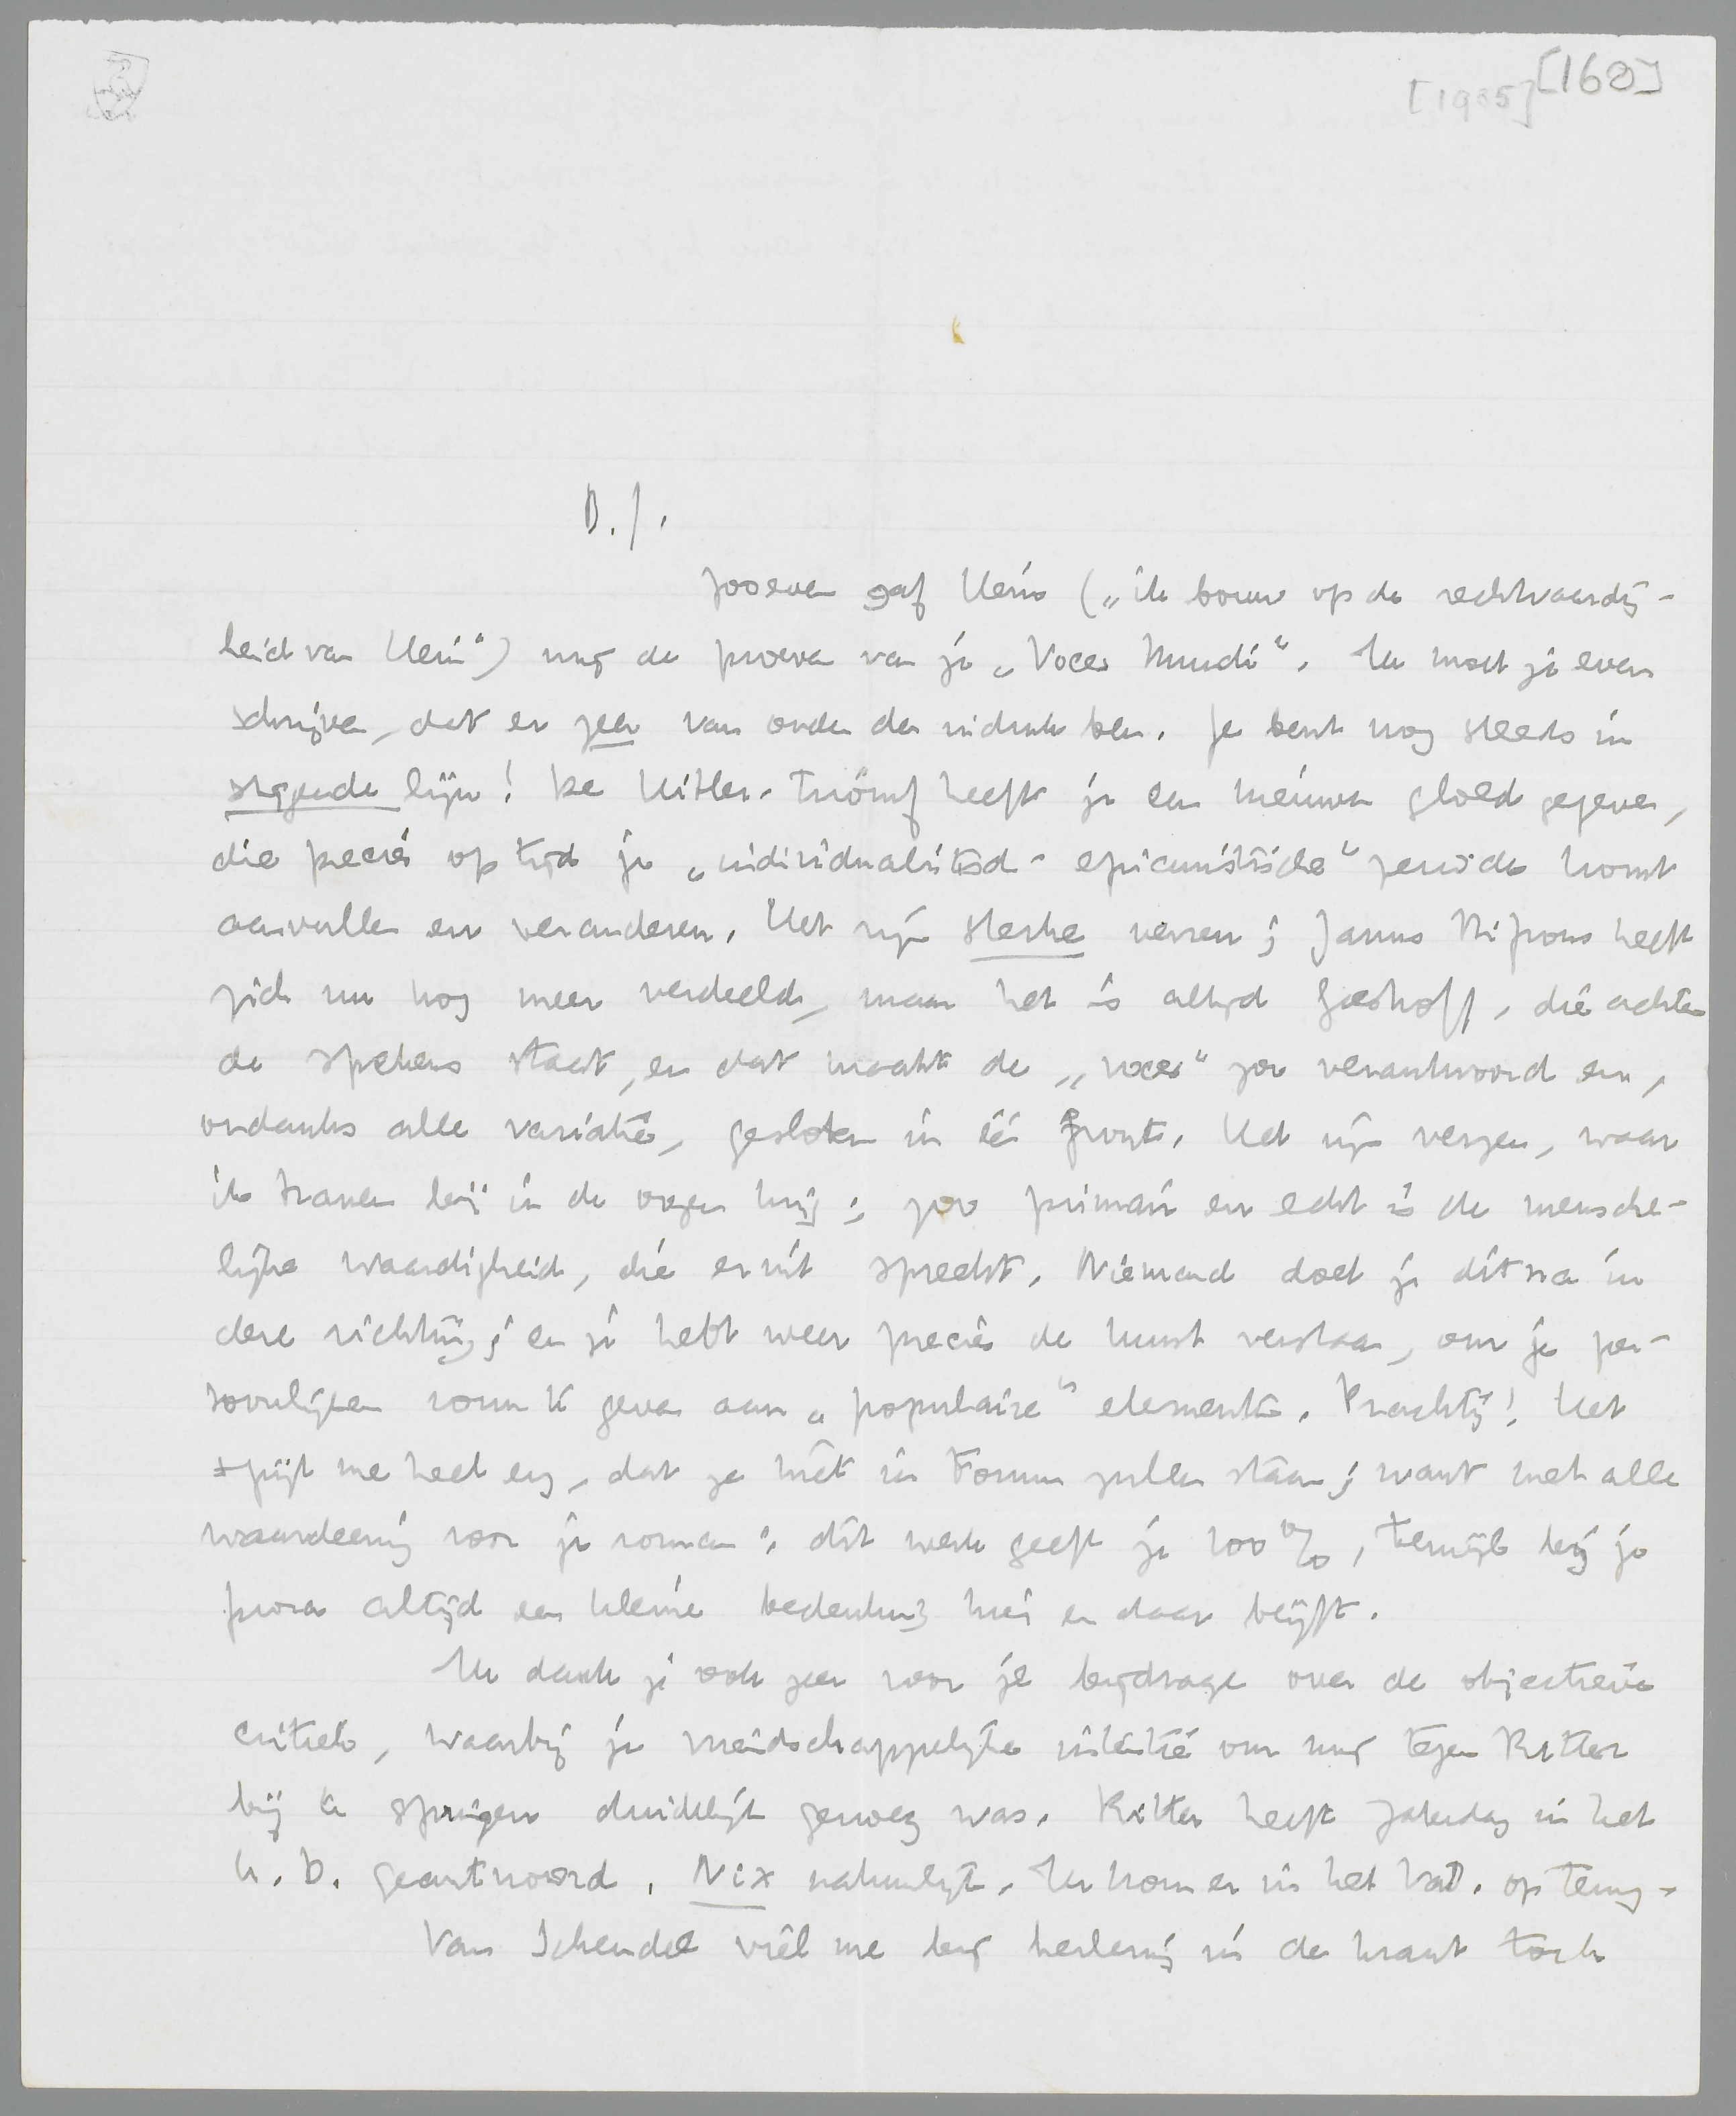 [1935] [168]
B. J.
Zooeven gaf Hein („ik bouw op de rechtvaardig-
heid van Hein") mij de proeven van je „Voces Mundi". Ik moet je even
schrijven, dat er zeer van onder den indruk ben. Je bent nog steeds in
stijgende lijn! De Hitler-triomf heeft je een nieuwen gloed gegeven,
die precies op tijd je „individualistisch-epicuristische" periode komt
aanvullen en veranderen. Het zijn sterke verzen; Janus Bifrons heeft
zich nu nog meer verdeeld, maar het is altijd Greshoff, die achter
de sprekers staat, en dat maakt de „voces" zoo verantwoord en,
ondanks alle variatie, gesloten in één front. Het zijn verzen, waar
ik tranen bij in de oogen krijg; zoo primair en echt is de mensche-
lijke waardigheid, die eruit spreekt. Niemand doet je dit na in
deze richting; en je hebt weer precies de kunst verstaan, om je per-
soonlijken vorm te geven aan „populaire" elementen. Prachtig! Het
spijt me heel erg, dat ze niet in Forum zullen staan; want met alle
waardeering voor je roman: dit werk geeft je 100%, terwijl bij je
proza altijd een kleine bedenking hier en daar blijft.
Ik dank je ook zeer voor je bijdrage over de objectieve
critiek, waarbij je vriendschappelijke intentie om mij tegen Ritter
bij te springen duidelijk genoeg was. Ritter heeft Zaterdag in het
U. D. geantwoord. Nix natuurlijk. Ik kom er in het Vad. op terug.
Van Schendel viel me bij herlezing in de krant toch